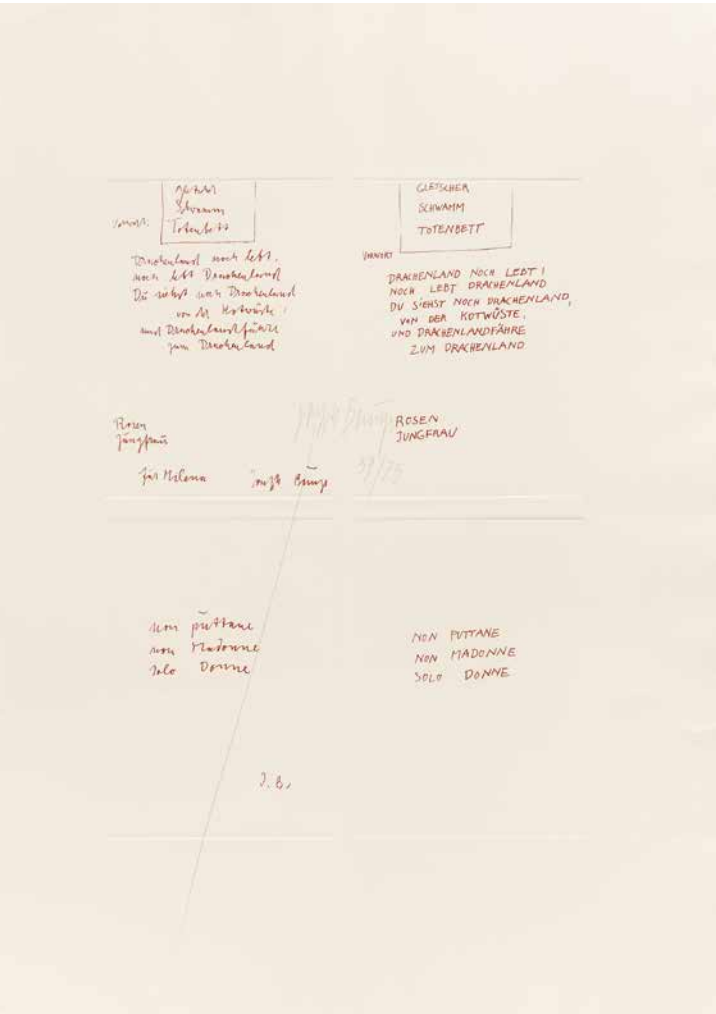 Gletscher
Schwamm
Totenbett
Vorwort:
Drachenland noch lebt,
noch lebt Drachenland
Du siehst noch Drachenland
von der Kotwüste,
und Drachenlandfähre
zum Drachenland
Rosen
Jungfrau
für Milena
non puttane
non Madonne
solo Donne
J. B.
GLETSCHER
SCHWAMM
TOTENBETT
VORWORT
DRACHENLAND NOCH LEBT!
NOCH LEBT DRACHENLAND
DU SIEHST NOCH DRACHENLAND,
VON DER KOTWÜSTE,
UND DRACHENLANDFÄHRE
ZUM DRACHENLAND
ROSEN
JUNGFRAU
/75
NON PUTTANE
NON MADONNE
SOLO DONNE